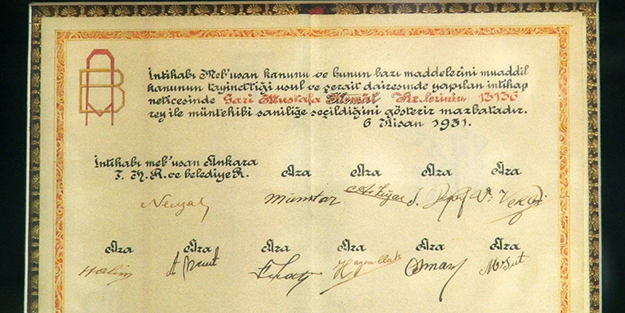 AB
İntihabı Meb'usan kanunu ve bunun bazı maddelerini muaddil
kanunun tayinettiği usul ve şerait dairesinde yapılan intihap
neticesinde Gazi Mustafa Kemâl Hz.lerinin 13136
rey ile müntehibi saniliğe seçildiğini gösterir mazbatadır.
6 Nisan 1931.
İntihabı meb'usan Ankara Aza Aza Aza Aza
T. H. R. ve belediye R.
Mümtaz
Aza Aza Aza Aza Aza Aza
Halim Hayrullah Osman Mes'ut